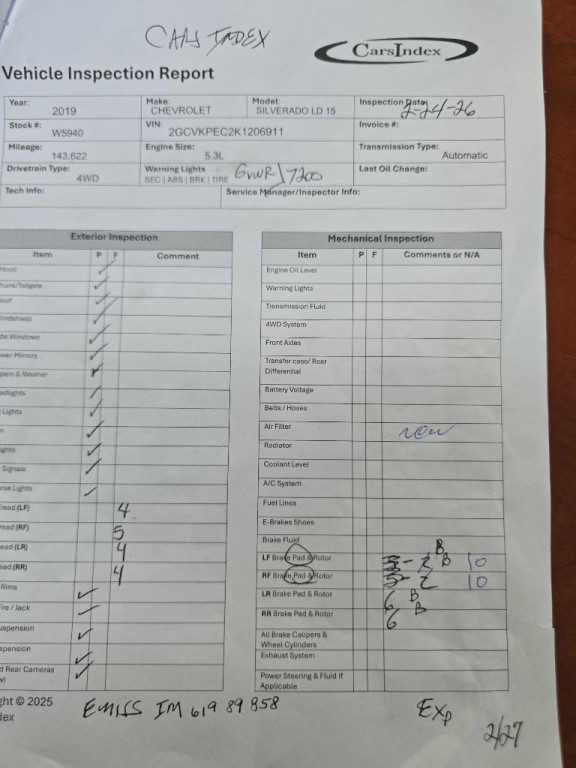 CARS INDEX
CarsIndex
Vehicle Inspection Report
Year: 2019 Make: CHEVROLET Model: SILVERADO LD 15 Inspection Date: 2-24-26
Stock #: W5940 VIN: 2GCVKPEC2K1206911 Invoice #:
Mileage: 143,622 Engine Size: 5.3L Transmission Type: Automatic
Drivetrain Type: 4WD Warning Lights SEC | ABS | BRK | TIRE GVWR 7200 Last Oil Change:
Tech Info: Service Manager/Inspector Info:
Exterior Inspection
Item P F Comment
Hood ✓
Trunk/Tailgate ✓
oof ✓
indshield ✓
de Windows ✓
wer Mirrors ✓
pers & Washer ✓
adlights ✓
Lights ✓
n ✓
ghts ✓
Signals ✓
rse Lights ✓
Tread (LF) 4
ead (RF) 5
ead (LR) 4
ead (RR) 4
Rims ✓
ire / Jack ✓
uspension ✓
spension ✓
d Rear Cameras ✓
w)
Mechanical Inspection
Item P F Comments or N/A
Engine Oil Level
Warning Lights
Transmission Fluid
4WD System
Front Axles
Transfer case/ Rear
Differential
Battery Voltage
Belts / Hoses
Air Filter new
Radiator
Coolant Level
A/C System
Fuel Lines
E-Brakes Shoes
Brake Fluid
LF Brake Pad & Rotor 2 B 10
RF Brake Pad & Rotor 2 B 10
LR Brake Pad & Rotor 6 B
RR Brake Pad & Rotor 6 B
All Brake Calipers &
Wheel Cylinders
Exhaust System
Power Steering & Fluid If
Applicable
ght © 2025
dex
EMISS IM 619 89 858
Exp 2/27